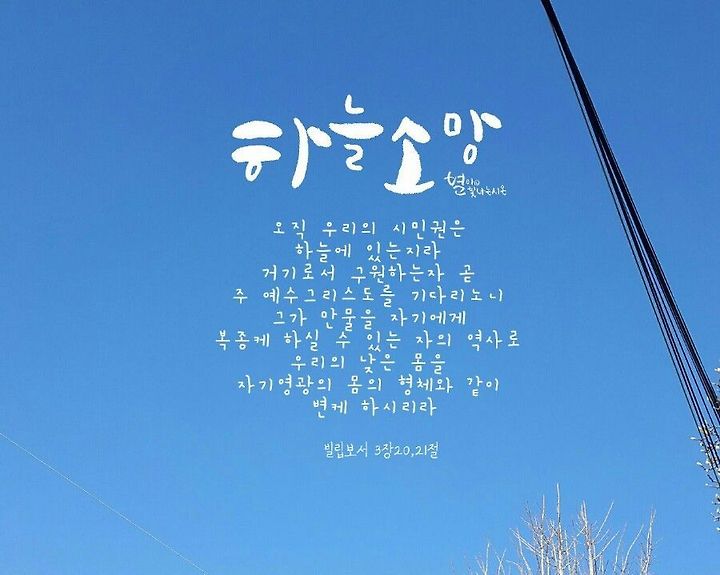 하늘소망
오직 우리의 시민권은
하늘에 있는지라
거기로서 구원하는자 곧
주 예수그리스도를 기다리노니
그가 만물을 자기에게
복종케 하실 수 있는 자의 역사로
우리의 낮은 몸을
자기영광의 몸의 형체와 같이
변케 하시리라
빌립보서 3장20,21절